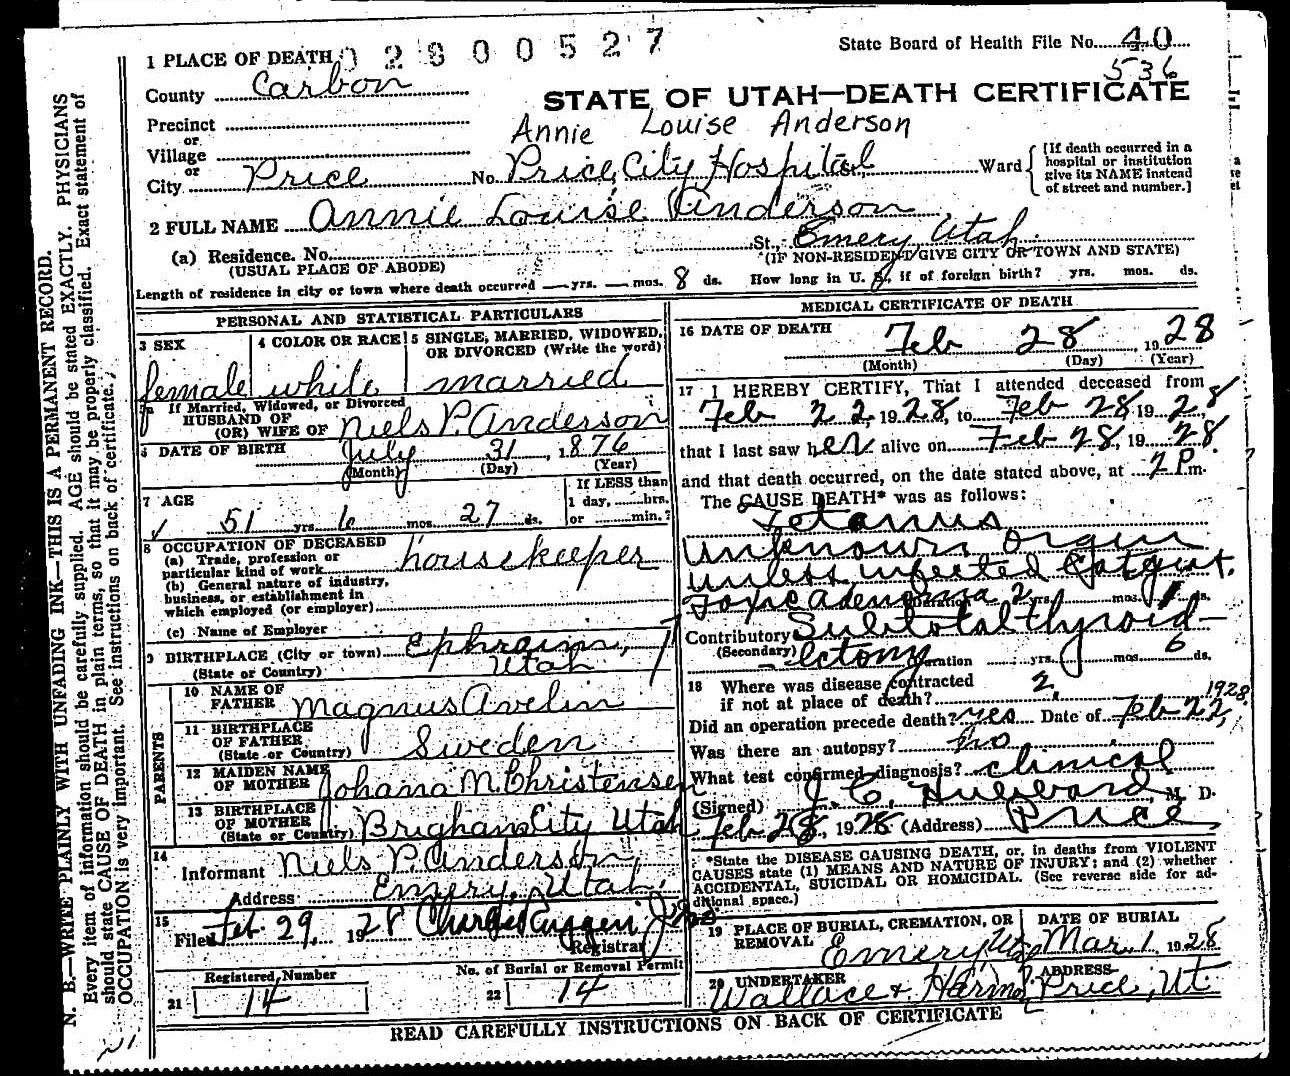 1 PLACE OF DEATH 02800527
State Board of Health File No. 40
536
County Carbon
STATE OF UTAH—DEATH CERTIFICATE
Precinct
Annie Louise Anderson
or
Village
or
City Price No. Price City Hospital St. Ward
[If death occurred in a
hospital or institution
give its NAME instead
of street and number.]
2 FULL NAME Annie Louise Anderson
(a) Residence. No. St. Emery, Utah.
(USUAL PLACE OF ABODE) (IF NON-RESIDENT GIVE CITY OR TOWN AND STATE)
Length of residence in city or town where death occurred — yrs. — mos. 8 ds. How long in U. S. if of foreign birth? yrs. mos. ds.
PERSONAL AND STATISTICAL PARTICULARS
3 SEX female
4 COLOR OR RACE white
5 SINGLE, MARRIED, WIDOWED,
OR DIVORCED (Write the word)
married
5a If Married, Widowed, or Divorced
HUSBAND OF
(OR) WIFE OF Niels P. Anderson
6 DATE OF BIRTH July 31, 1876
(Month) (Day) (Year)
7 AGE
51 yrs. 6 mos. 27 ds.
If LESS than
1 day, ....hrs.
or ....min.?
8 OCCUPATION OF DECEASED
(a) Trade, profession or
particular kind of work housekeeper
(b) General nature of industry,
business, or establishment in
which employed (or employer)
(c) Name of Employer
9 BIRTHPLACE (City or town) Ephraim,
(State or Country) Utah
PARENTS
10 NAME OF
FATHER Magnus Avelin
11 BIRTHPLACE
OF FATHER
(State or Country) Sweden
12 MAIDEN NAME
OF MOTHER Johana M. Christensen
13 BIRTHPLACE
OF MOTHER
(State or Country) Brigham City Utah
14
Informant Niels P. Anderson,
Address Emery, Utah.
15
Filed Feb. 29, 1928
Registrar
Registered Number
21 14
No. of Burial or Removal Permit
22 14
MEDICAL CERTIFICATE OF DEATH
16 DATE OF DEATH Feb 28 1928
(Month) (Day) (Year)
17 I HEREBY CERTIFY, That I attended deceased from
Feb 22, 1928, to Feb 28 1928,
that I last saw her alive on Feb 28, 1928.
and that death occurred, on the date stated above, at 2 P.m.
The CAUSE DEATH* was as follows:
Tetanus
unknown orgin
unless infected Catgut.
Toxic adenoma Duration 2 yrs. mos. ds.
Contributory Subtotal thyroid-
(Secondary) ectomy Duration yrs. mos 6 ds.
18 Where was disease contracted
if not at place of death? 2,
Did an operation precede death? yes Date of Feb 22, 1928
Was there an autopsy? no
What test confirmed diagnosis? clinical
(Signed) J. C. Hubbard, M. D.
Feb 28, 1928 (Address) Price
*State the DISEASE CAUSING DEATH, or, in deaths from VIOLENT
CAUSES state (1) MEANS AND NATURE OF INJURY; and (2) whether
ACCIDENTAL, SUICIDAL OR HOMICIDAL. (See reverse side for ad-
ditional space.)
19 PLACE OF BURIAL, CREMATION, OR
REMOVAL Emery, Utah
DATE OF BURIAL
Mar. 1 1928
20 UNDERTAKER
Wallace & Harmon
ADDRESS
Price, Ut.
READ CAREFULLY INSTRUCTIONS ON BACK OF CERTIFICATE
N. B.—WRITE PLAINLY WITH UNFADING INK—THIS IS A PERMANENT RECORD.
Every item of information should be carefully supplied. AGE should be stated EXACTLY. PHYSICIANS
should state CAUSE OF DEATH in plain terms, so that it may be properly classified. Exact statement of
OCCUPATION is very important. See instructions on back of certificate.